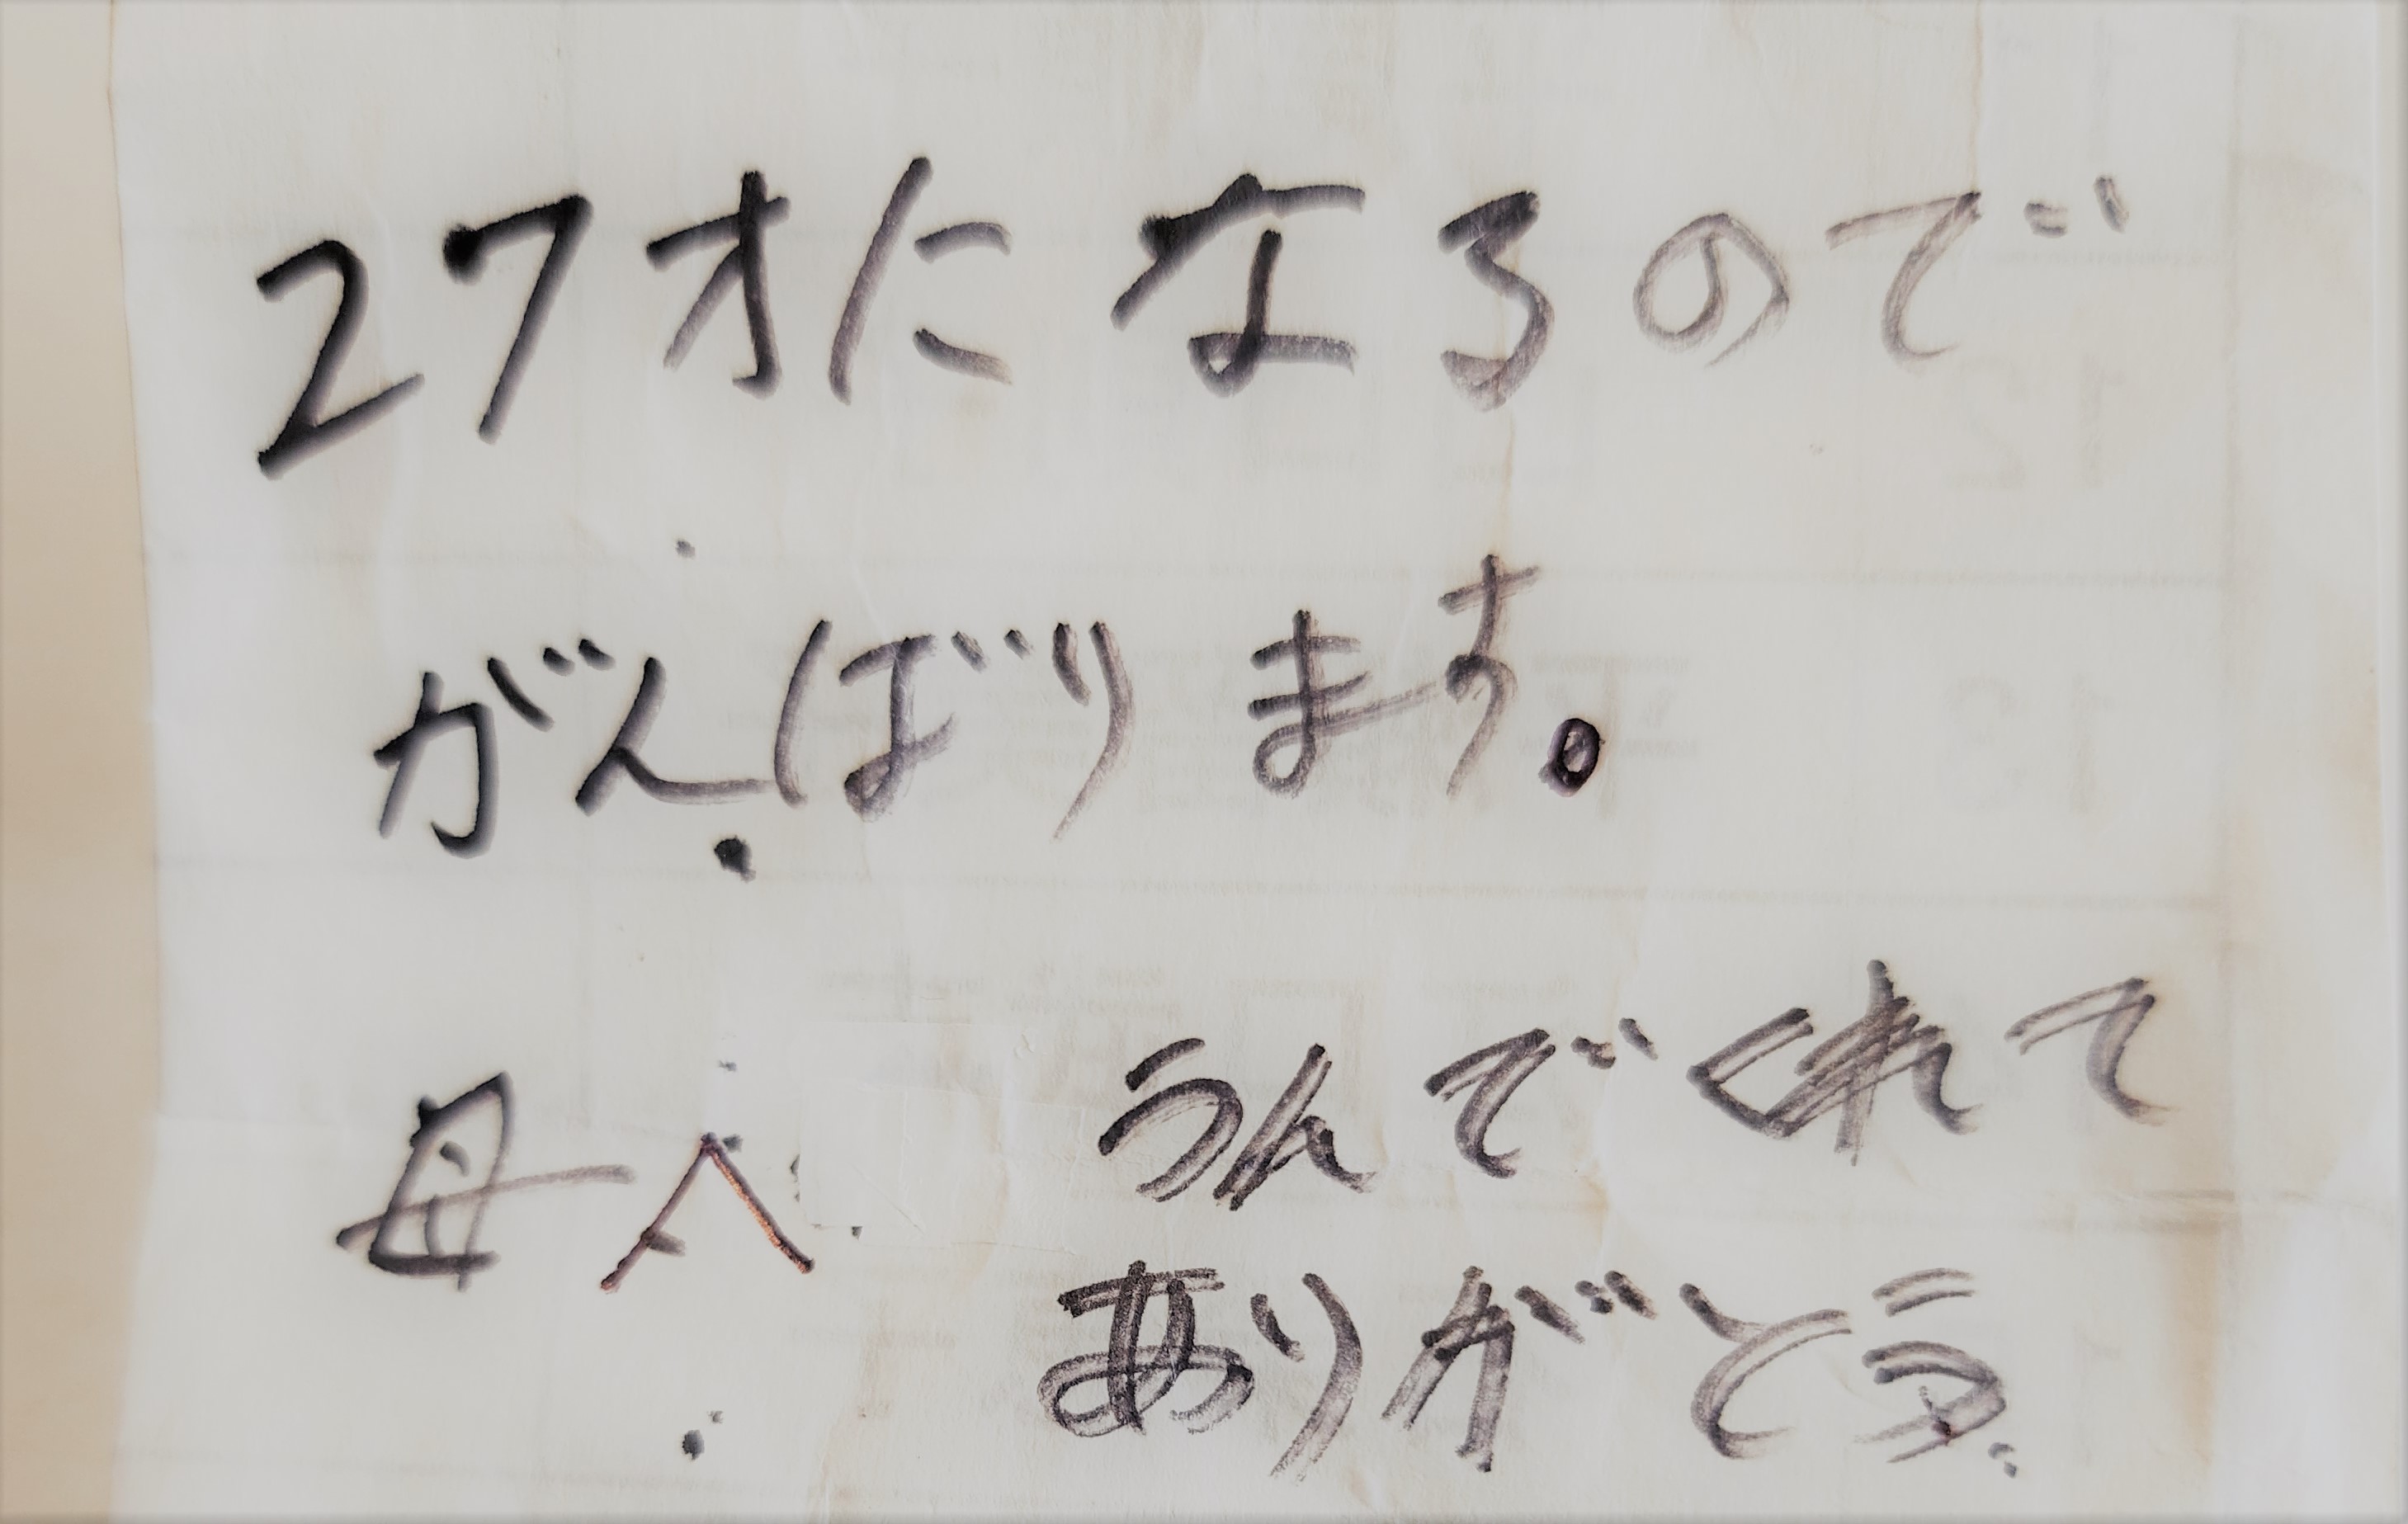 27才になるので
がんばります。
母へ うんでくれて
ありがとう